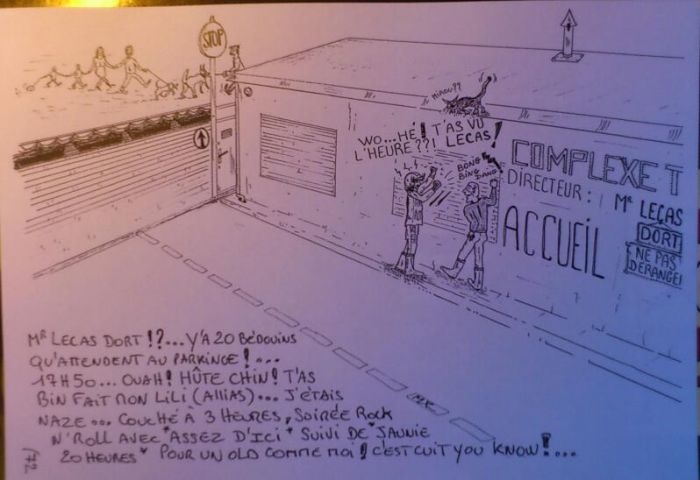 STOP
MIAOU??
WO...HÉ! T'AS VU
L'HEURE??! LECAS!
BONG
BING
BANG
COMPLEXE T
DIRECTEUR: MR LECAS
DORT
NE PAS
DÉRANGE!
ACCUEIL
MR LECAS DORT!?...Y'A 20 BÉDOUINS
QU'ATTENDENT AU PARKINGE!...
17H50... OUAH! HÛTE CHIN! T'AS
BIN FAIT MON LILI (ALLIAS)... J'ÉTAIS
NAZE... COUCHÉ À 3 HEURES, SOIRÉE ROCK
N'ROLL AVEC "ASSEZ D'ICI" SUIVI DE "JAUNIE
20 HEURES" POUR UN OLD COMME MOI! C'EST CUIT YOU KNOW!...